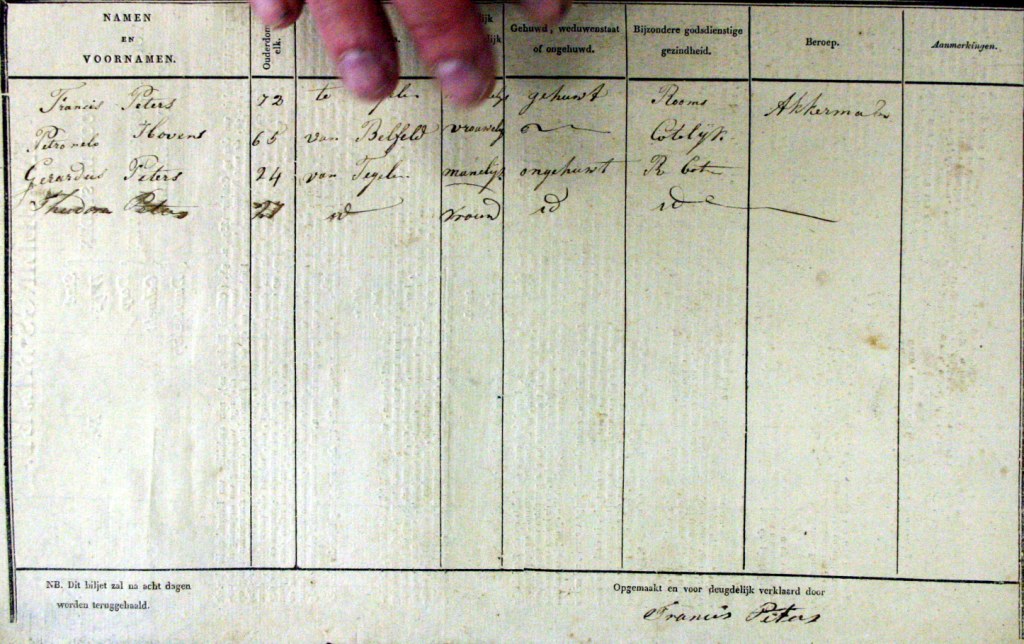 NAMEN EN VOORNAMEN. Ouderdom elk. Gehuwd, weduwenstaat of ongehuwd. Bijzondere godsdienstige gezindheid. Beroep. Aanmerkingen.
Francis Peters 72 te gehuwt Rooms Akkerman
Petronela Hovens 65 van Belfeld vrouwelyk Cotolyk
Gerardus Peters 24 van Tegelen manelyk ongehuwt R Cot
Theodora Peters 27 id vrouw id id
NB. Dit biljet zal na acht dagen
worden teruggehaald.
Opgemaakt en voor deugdelijk verklaard door
Francis Peters